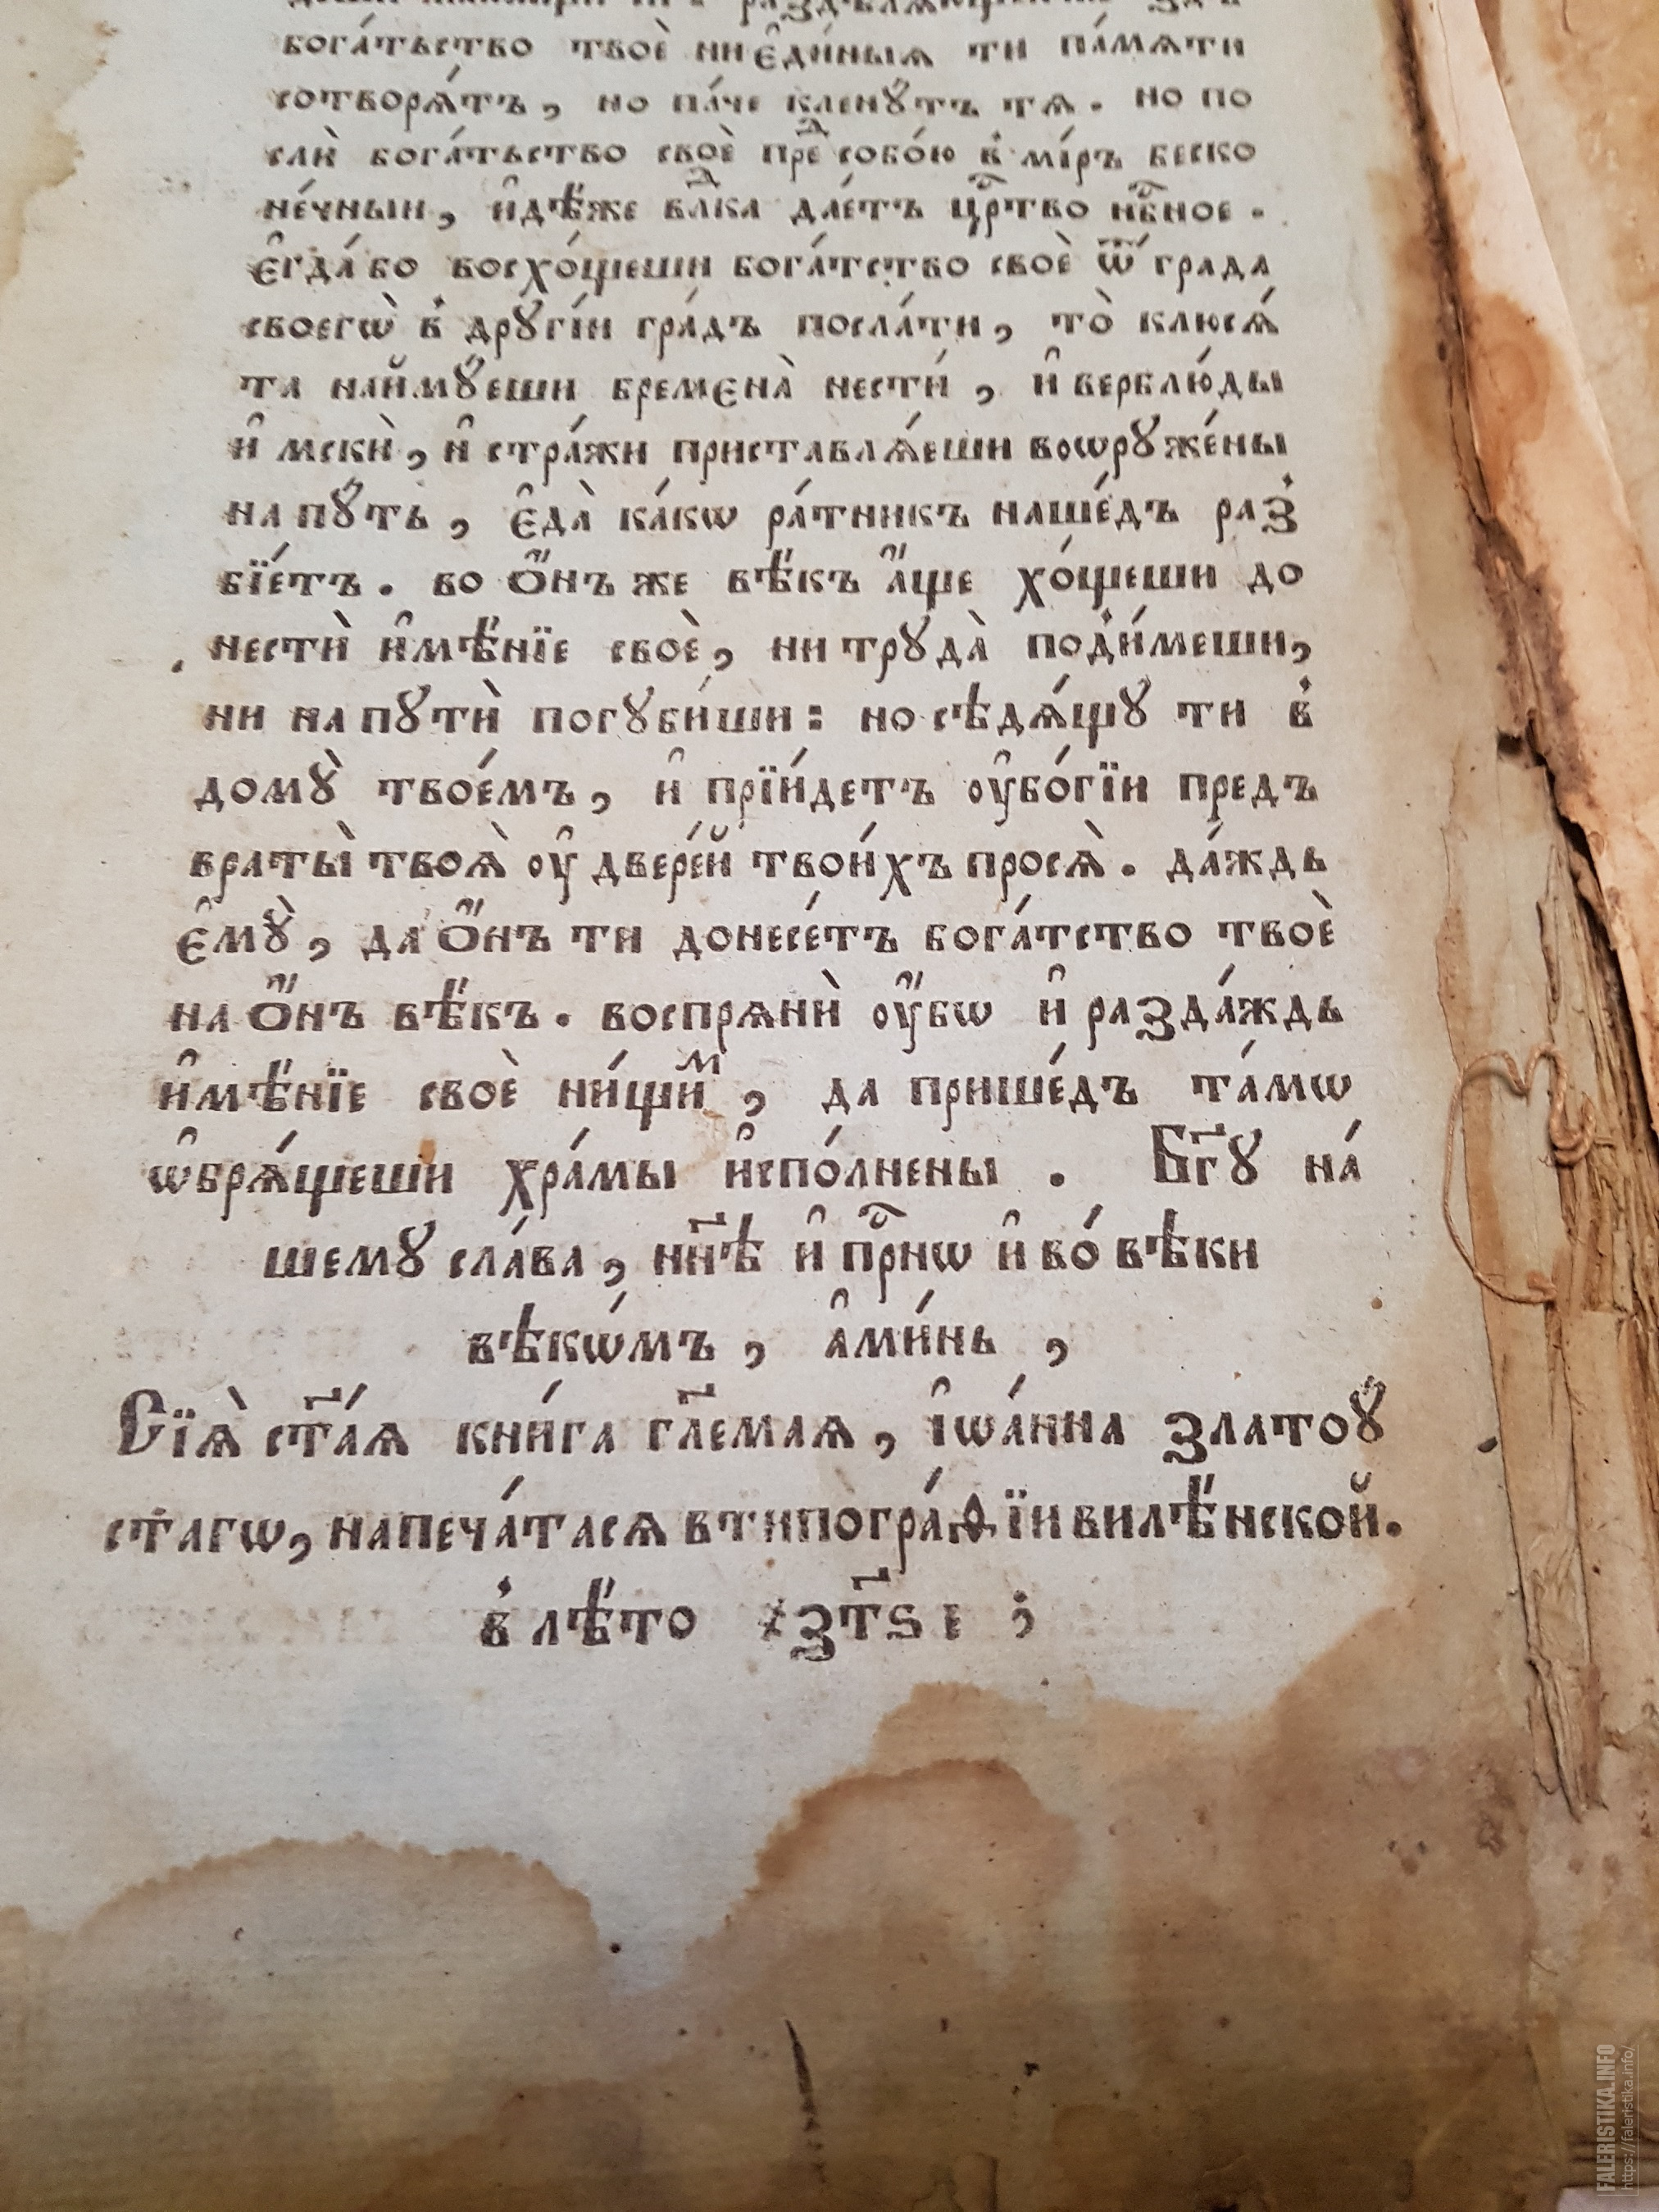 бога́тьство твоѐ ни є҆ди́ныѧ ти па́мѧти
сотворѧ́тъ, но па́че клену́тъ тѧ. но по
слѝ бога́тьство своѐ преⷣ собо́ю в̾ мі́ръ беско
не́чныи, и҆дѣ́же влⷣка дае́тъ црⷭ҇тво нбⷭ҇ное.
є҆гда́ бо восхо́щеши бога́тство своѐ ѿ гра́да
своегѡ̀ в̾ дрꙋгі́и гра́дъ посла́ти, то̀ клюсѧ́
та наймꙋ́еши бременà нести́, и҆ верблю́ды
и҆ мскѝ, и҆ стра́жи приставлѧ́еши воѡрꙋже́ны
на пꙋ́ть, є҆дà ка́кѡ ра́тникъ наше́дъ раз̾
бїе́тъ. во ѻ҆́нъ же вѣ́къ а҆́ще хо́щеши до
нестѝ и҆мѣ́нїе своѐ, ни трꙋдà под̾и́меши,
ни на пꙋтѝ погꙋби́ши: но сѣдѧ́щꙋ ти в̾
домꙋ̀ твое́мъ, и҆ прїи́детъ ᲂу҆бо́гїи предъ
враты̀ твоѧ̀ ᲂу҆ двере́й твои́хъ просѧ̀. да́ждь
є҆мꙋ̀, да ѻ҆́нъ ти донесе́тъ бога́тство твоѐ
на ѻ҆́нъ вѣ́къ. воспрѧнѝ ᲂу҆́бѡ и҆ разда́ждь
и҆мѣ́нїе своѐ ни́щиⷨ, да прише́дъ та́мѡ
ѡ҆брѧ́щеши хра́мы и҆спо́лнены. Бг҃ꙋ на́
шемꙋ сла́ва, нн҃ѣ и҆ прⷭ҇нѡ и҆ во́ вѣки
вѣкѡ́мъ, а҆ми́нь,
Сїѧ̀ ст҃а́ѧ кни́га гл҃емаѧ, і҆ѡа́нна златоꙋ́
стагѡ, напеча́тасѧ в типогра́ѳїи вилѣ́нской.
в̾ лѣ́то ҂зт҃ѕ і ;
FALERISTIKA.INFO
https://faleristika.info/